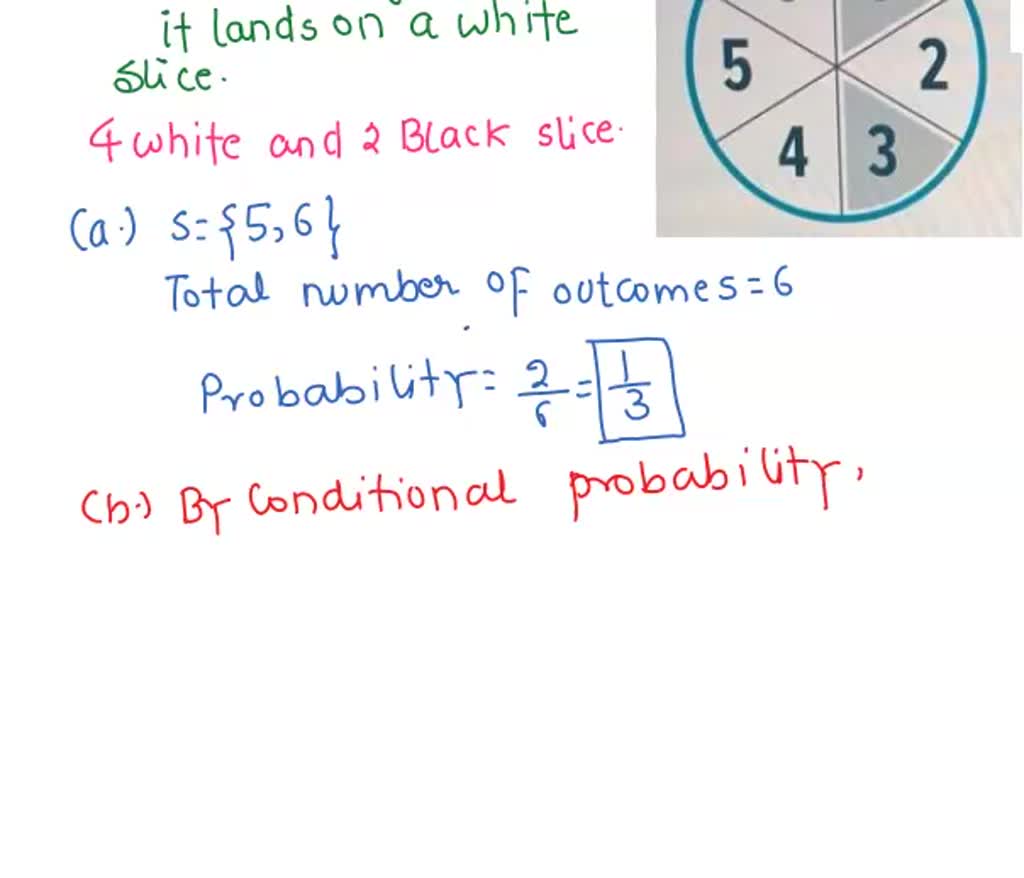 it lands on a white
slice.
4 white and 2 Black slice.
(a.) S={5,6}
Total number of outcomes=6
Probability= 2/6 = 1/3
(b.) By Conditional probability,
5
2
4
3